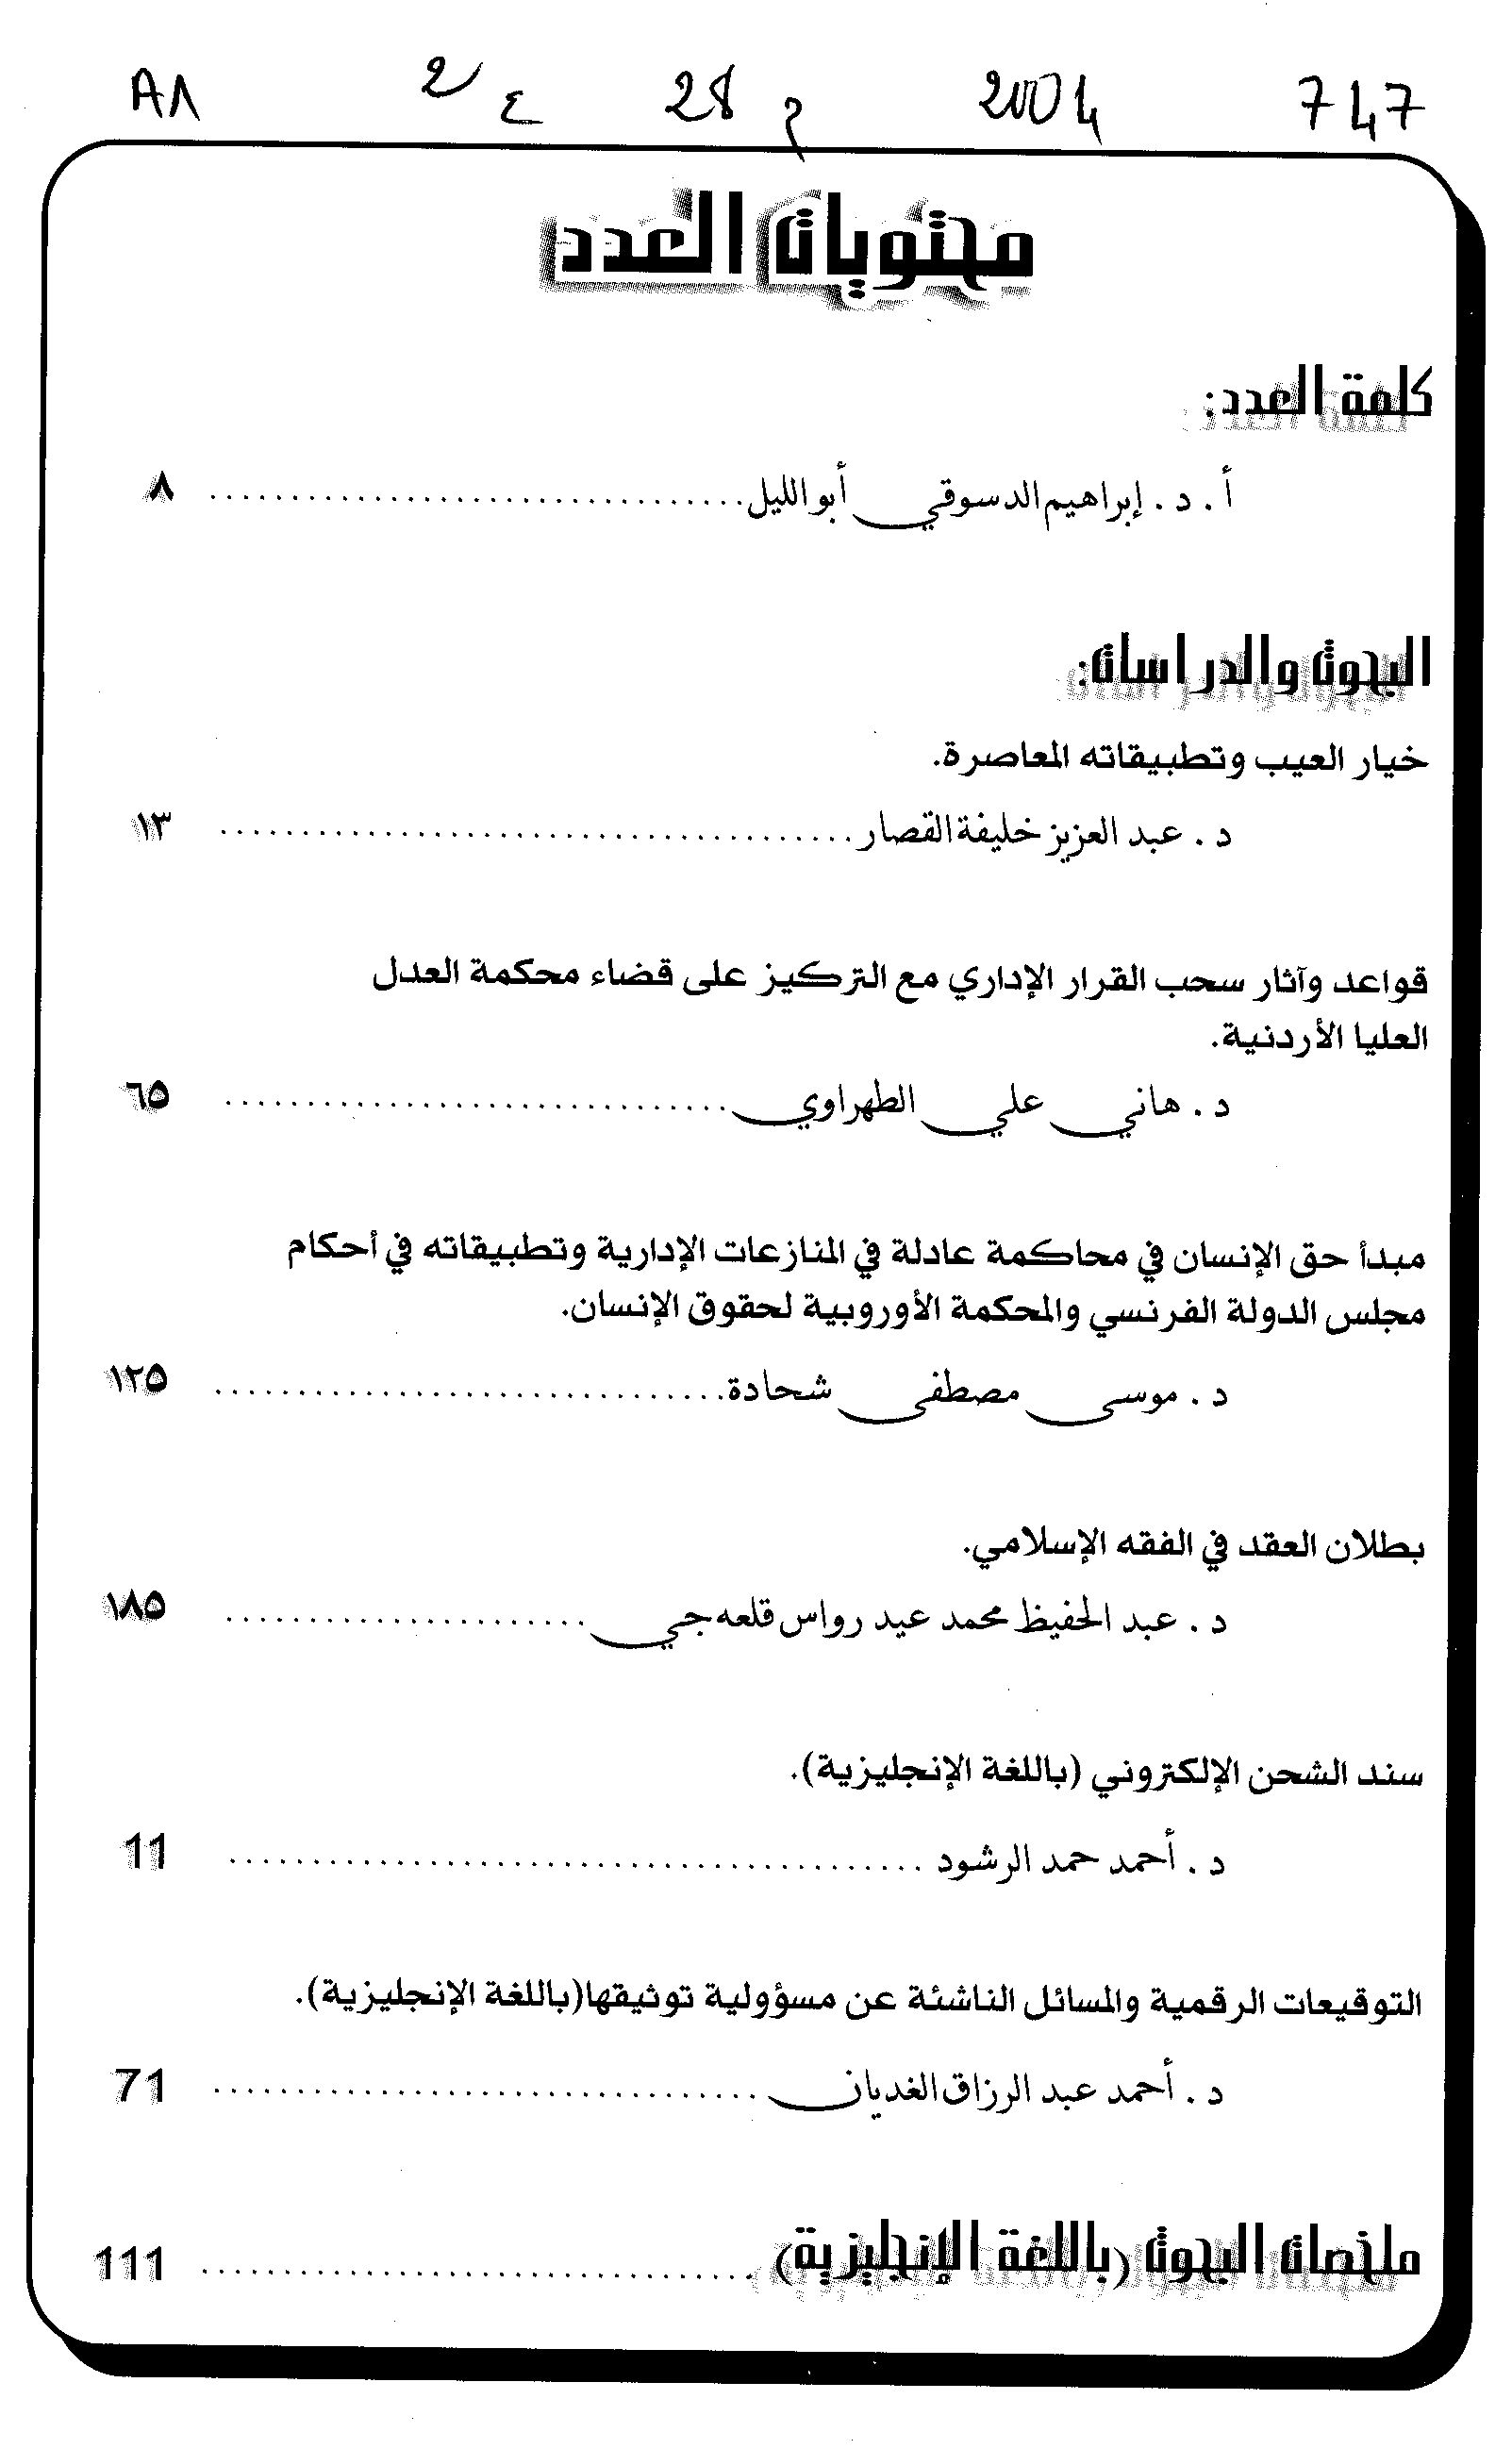 747 2004 م 28 ع 2 A1
محتويات العدد
كلمة العدد:
أ . د . إبراهيم الدسوقي أبو الليل .......... ٨
البحوث والدراسات:
خيار العيب وتطبيقاته المعاصرة.
د . عبد العزيز خليفة القصار .......... ١٣
قواعد وآثار سحب القرار الإداري مع التركيز على قضاء محكمة العدل
العليا الأردنية.
د . هاني علي الطهراوي .......... ٦٥
مبدأ حق الإنسان في محاكمة عادلة في المنازعات الإدارية وتطبيقاته في أحكام
مجلس الدولة الفرنسي والمحكمة الأوروبية لحقوق الإنسان.
د . موسى مصطفى شحادة .......... ١٢٥
بطلان العقد في الفقه الإسلامي.
د . عبد الحفيظ محمد عيد رواس قلعه جي .......... ١٨٥
سند الشحن الإلكتروني (باللغة الإنجليزية).
د . أحمد حمد الرشود .......... 11
التوقيعات الرقمية والمسائل الناشئة عن مسؤولية توثيقها(باللغة الإنجليزية).
د . أحمد عبد الرزاق الغديان .......... 71
ملخصات البحوث (باللغة الإنجليزية) .......... 111